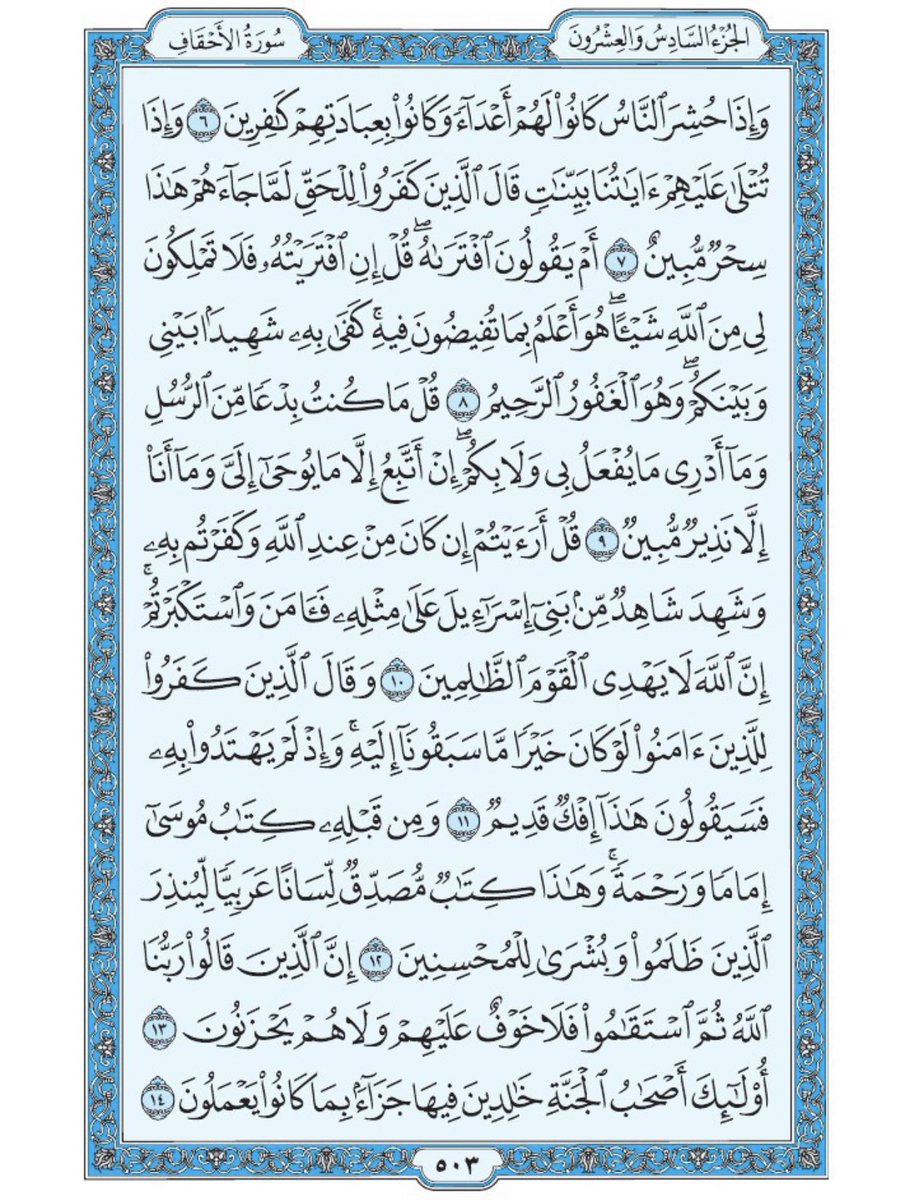 الجُزْءُ السَّادِسُ وَالعِشْرُونَ
سُورَةُ الأَحْقَافِ
وَإِذَا حُشِرَ ٱلنَّاسُ كَانُوا۟ لَهُمْ أَعْدَآءً وَكَانُوا۟ بِعِبَادَتِهِمْ كَٰفِرِينَ ٦ وَإِذَا
تُتْلَىٰ عَلَيْهِمْ ءَايَٰتُنَا بَيِّنَٰتٍ قَالَ ٱلَّذِينَ كَفَرُوا۟ لِلْحَقِّ لَمَّا جَآءَهُمْ هَٰذَا
سِحْرٌ مُّبِينٌ ٧ أَمْ يَقُولُونَ ٱفْتَرَىٰهُ ۖ قُلْ إِنِ ٱفْتَرَيْتُهُۥ فَلَا تَمْلِكُونَ
لِى مِنَ ٱللَّهِ شَيْـًٔا ۖ هُوَ أَعْلَمُ بِمَا تُفِيضُونَ فِيهِ ۚ كَفَىٰ بِهِۦ شَهِيدًۢا بَيْنِى
وَبَيْنَكُمْ ۖ وَهُوَ ٱلْغَفُورُ ٱلرَّحِيمُ ٨ قُلْ مَا كُنتُ بِدْعًا مِّنَ ٱلرُّسُلِ
وَمَآ أَدْرِى مَا يُفْعَلُ بِى وَلَا بِكُمْ ۖ إِنْ أَتَّبِعُ إِلَّا مَا يُوحَىٰٓ إِلَىَّ وَمَآ أَنَا۠
إِلَّا نَذِيرٌ مُّبِينٌ ٩ قُلْ أَرَءَيْتُمْ إِن كَانَ مِنْ عِندِ ٱللَّهِ وَكَفَرْتُم بِهِۦ
وَشَهِدَ شَاهِدٌ مِّنۢ بَنِىٓ إِسْرَٰٓءِيلَ عَلَىٰ مِثْلِهِۦ فَـَٔامَنَ وَٱسْتَكْبَرْتُمْ ۚ
إِنَّ ٱللَّهَ لَا يَهْدِى ٱلْقَوْمَ ٱلظَّٰلِمِينَ ١٠ وَقَالَ ٱلَّذِينَ كَفَرُوا۟
لِلَّذِينَ ءَامَنُوا۟ لَوْ كَانَ خَيْرًا مَّا سَبَقُونَآ إِلَيْهِ ۚ وَإِذْ لَمْ يَهْتَدُوا۟ بِهِۦ
فَسَيَقُولُونَ هَٰذَآ إِفْكٌ قَدِيمٌ ١١ وَمِن قَبْلِهِۦ كِتَٰبُ مُوسَىٰٓ
إِمَامًا وَرَحْمَةً ۚ وَهَٰذَا كِتَٰبٌ مُّصَدِّقٌ لِّسَانًا عَرَبِيًّا لِّيُنذِرَ
ٱلَّذِينَ ظَلَمُوا۟ وَبُشْرَىٰ لِلْمُحْسِنِينَ ١٢ إِنَّ ٱلَّذِينَ قَالُوا۟ رَبُّنَا
ٱللَّهُ ثُمَّ ٱسْتَقَٰمُوا۟ فَلَا خَوْفٌ عَلَيْهِمْ وَلَا هُمْ يَحْزَنُونَ ١٣
أُو۟لَٰٓئِكَ أَصْحَٰبُ ٱلْجَنَّةِ خَٰلِدِينَ فِيهَا جَزَآءًۢ بِمَا كَانُوا۟ يَعْمَلُونَ ١٤
٥٠٣